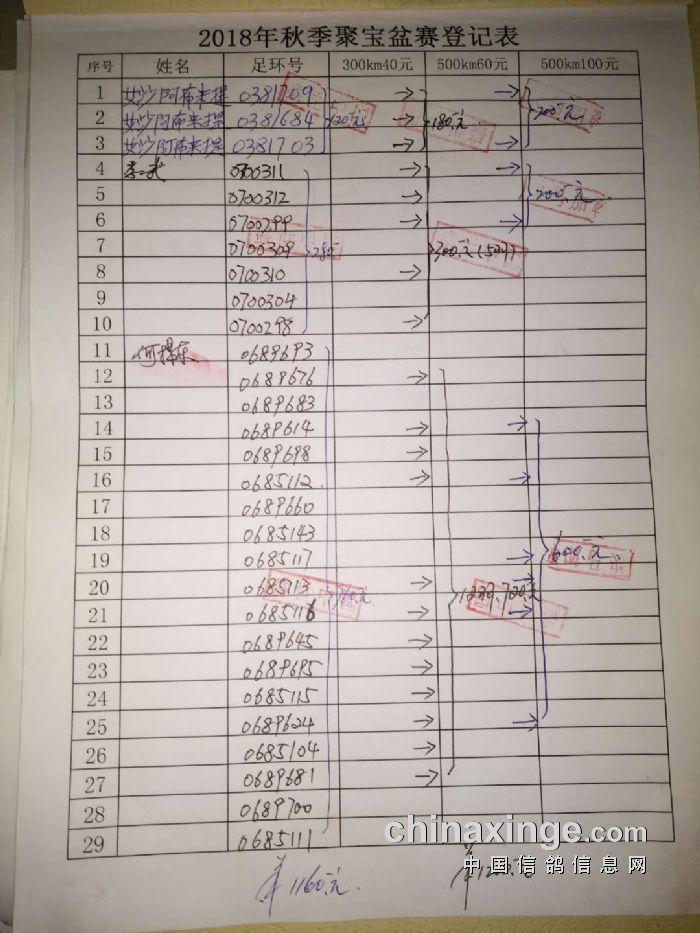 2018年秋季聚宝盆赛登记表
序号 姓名 足环号 300km40元 500km60元 500km100元
1 0381709
2 0381684 120元 180元 200元
3 0381703
4 0700311
5 0700312 200元
6 0700299
7 0700309 280 300元(5羽)
8 0700310
9 0700304
10 0700298
11 0689693
12 0689676
13 0689683
14 0689614
15 0689698
16 0685112
17 0689660
18 0685143
19 0685117 600元
20 0685113 760元 12羽 720元
21 0685116
22 0689645
23 0689695
24 0685115
25 0689624
26 0685104
27 0689681
28 0689700
29 0685111
chinaxinge.com
中国信鸽信息网
¥1160元